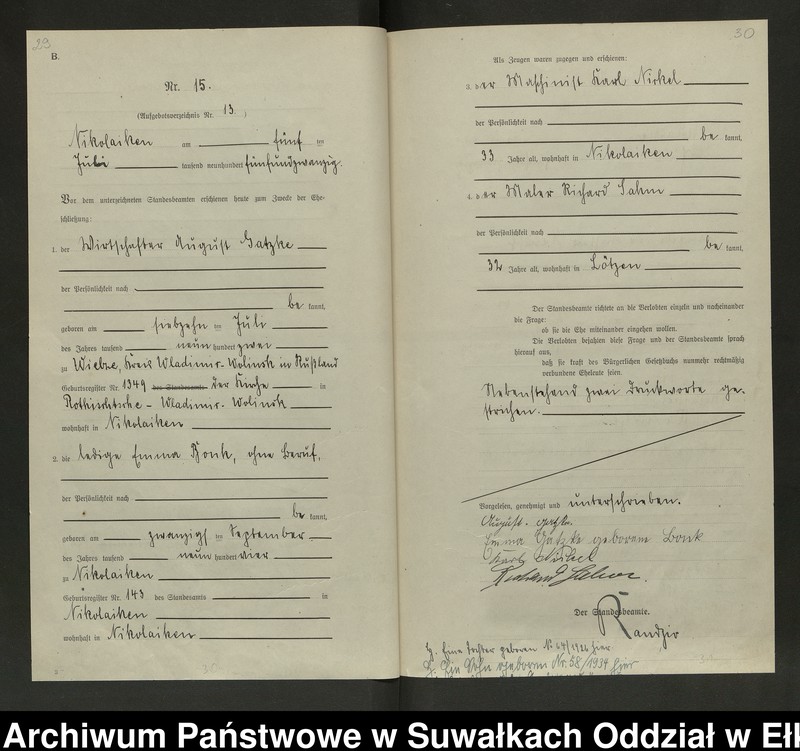 29
B.
Nr. 15.
(Aufgebotsverzeichnis Nr. 13)
Nikolaiken am fünf ten
Juli tausend neunhundert fünfundzwanzig.
Vor dem unterzeichneten Standesbeamten erschienen heute zum Zwecke der Ehe-
schließung:
1. der Wirtschafter August Gatzke
der Persönlichkeit nach
be kannt,
geboren am siebzehn ten Juli
des Jahres tausend neun hundert zwei
zu Kreis Wladimir-Wolinsk in Rußland
Geburtsregister Nr. 1349 des Standesamts der Kirche in
Wladimir-Wolinsk
wohnhaft in Nikolaiken
2. die ledige Emma Bonk, ohne Beruf,
der Persönlichkeit nach
be kannt,
geboren am zwanzigs ten September
des Jahres tausend neun hundert vier
zu Nikolaiken
Geburtsregister Nr. 143 des Standesamts in
Nikolaiken
wohnhaft in Nikolaiken
30
Als Zeugen waren zugegen und erschienen:
3. der Maschinist Karl Nickel
der Persönlichkeit nach
be kannt,
33 Jahre alt, wohnhaft in Nikolaiken
4. der Maler Richard
der Persönlichkeit nach
be kannt,
32 Jahre alt, wohnhaft in Lötzen
Der Standesbeamte richtete an die Verlobten einzeln und nacheinander
die Frage:
ob sie die Ehe miteinander eingehen wollen.
Die Verlobten bejahten diese Frage und der Standesbeamte sprach
hierauf aus,
daß sie kraft des Bürgerlichen Gesetzbuchs nunmehr rechtmäßig
verbundene Eheleute seien.
Nebenstehend zwei Druckworte ge-
strichen.
Vorgelesen, genehmigt und unterschrieben.
August
Emma Gatzke geborene Bonk
Karl Nickel
Richard
Der Standesbeamte.
Kandzior
Eine Tochter geboren N. 64/1926 hier
Ein Sohn geboren Nr. 58/1934 hier
Archiwum Państwowe w Suwałkach Oddział w Eł